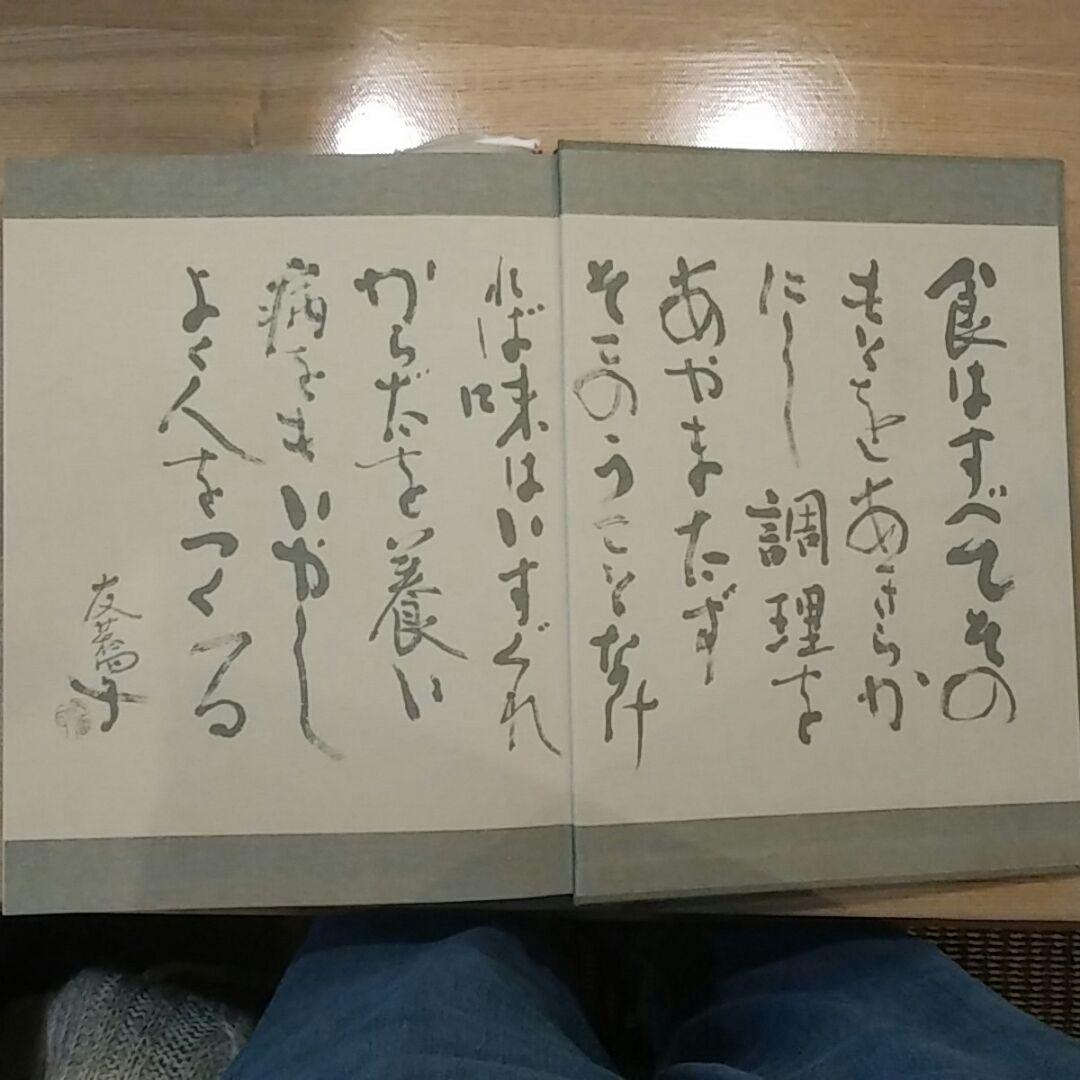 食はすべてその
もとをあきらか
にし調理を
あやまたず
そこのうことなけ
れば味はいすぐれ
からだを養い
病をもいやし
よく人をつくる
友蕎子